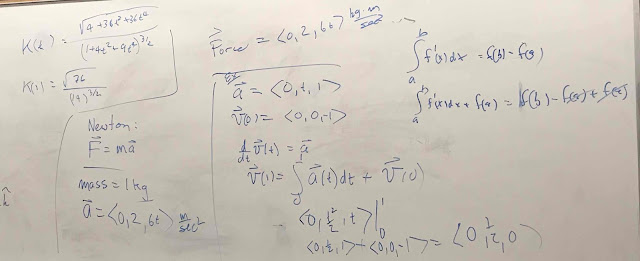 K(t) = √(4+36t²+36t⁴) / (1+4t²+9t⁴)^(3/2)
K(1) = √76 / (14)^(3/2)
Newton:
F⃗ = ma⃗
mass = 1 kg
a⃗ = <0, 2, 6t> m/sec²
Force = <0, 2, 6t> kg·m/sec² ...
ex
a⃗ = <0, t, 1>
v⃗(0) = <0, 0, -1>
d/dt v⃗(t) = a⃗
v⃗(1) = ∫₀¹ a⃗(t)dt + v⃗(0)
<0, t²/2, t>|₀¹
<0, ½, 1> + <0, 0, -1> = <0, ½, 0>
∫ₐᵇ f'(x)dx = f(b) - f(a)
∫ₐᵇ f'(x)dx + f(a) = f(b) - f(a) + f(a)